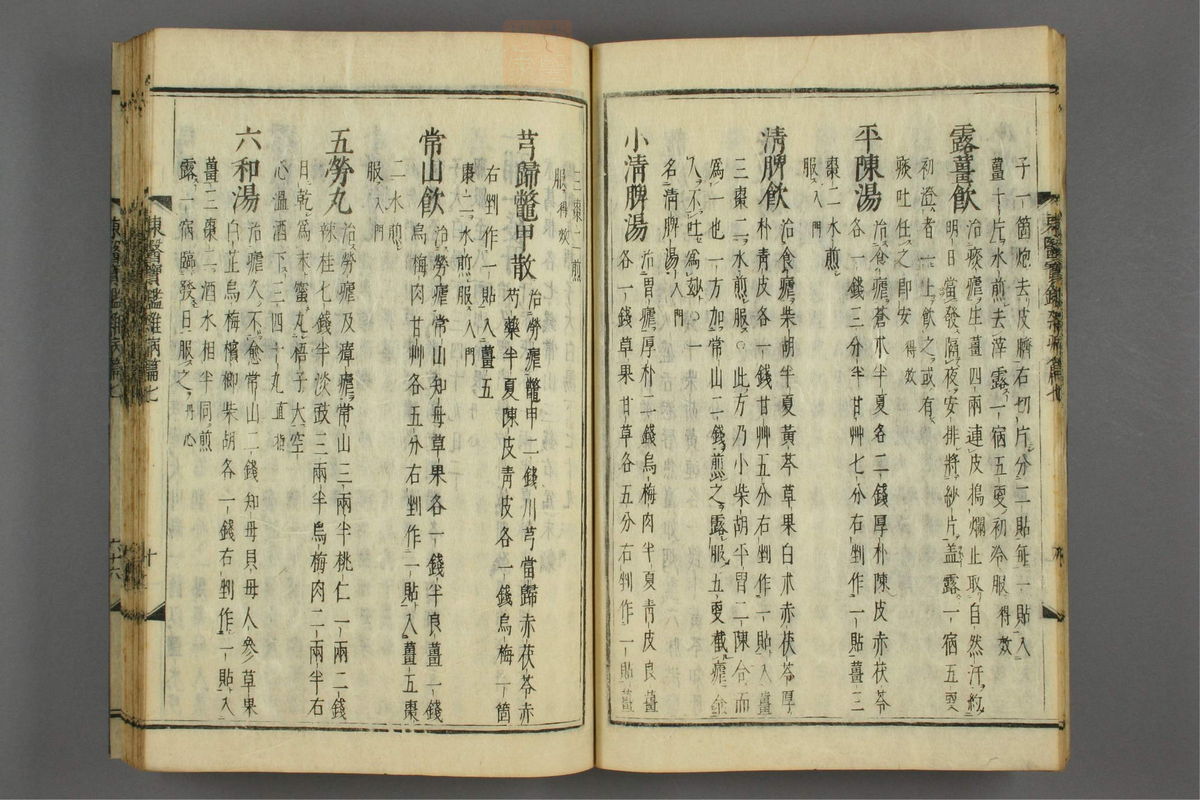 子一箇炮去皮臍右切片分二貼每一貼入
薑十片水煎去滓露一宿五更初冷服得效
露薑飮治痰瘧生薑四兩連皮搗爛止取自然汁約
明日當發隔夜安排將紗片盖露一宿五更
初澄者一上飮之或有
痰吐任之卽安得效
平陳湯治食瘧蒼朮半夏各二錢厚朴陳皮赤茯苓
各一錢三分半甘艸七分右剉作一貼薑三
棗二水煎
服入門
淸脾飮治食瘧柴胡半夏黃芩草果白朮赤茯苓厚
朴靑皮各一錢甘艸五分右剉作一貼入薑
三棗二水煎服○此方乃小柴胡平胃二陳合而
爲一也一方加常山二錢煎之露服五更截瘧
人不吐爲妙○一
名淸脾湯入門
小淸脾湯治胃瘧厚朴二錢烏梅肉半夏靑皮良薑
各一錢草果甘草各五分右剉作一貼薑
三棗二煎
服得效
芎歸鼈甲散治勞瘧鼈甲二錢川芎當歸赤茯苓赤
芍藥半夏陳皮靑皮各一錢烏梅一箇
右剉作一貼入薑五
棗二水煎服入門
常山飮治勞瘧常山知母草果各二錢半良薑一錢
烏梅肉甘艸各五分右剉作一貼入薑五棗
二水煎
服入門
五勞丸治勞瘧及瘴瘧常山三兩半桃仁一兩二錢
辣桂七錢半淡豉三兩半烏梅肉二兩半右
日乾爲末蜜丸梧子大空
心溫酒下三四十丸直指
六和湯治瘧久不愈常山二錢知母貝母人參草果
白芷烏梅檳榔柴胡各一錢右剉作一貼入
薑三棗二酒水相半同煎
露一宿臨發日服之丹心
東醫寶鑑雜病篇七
十